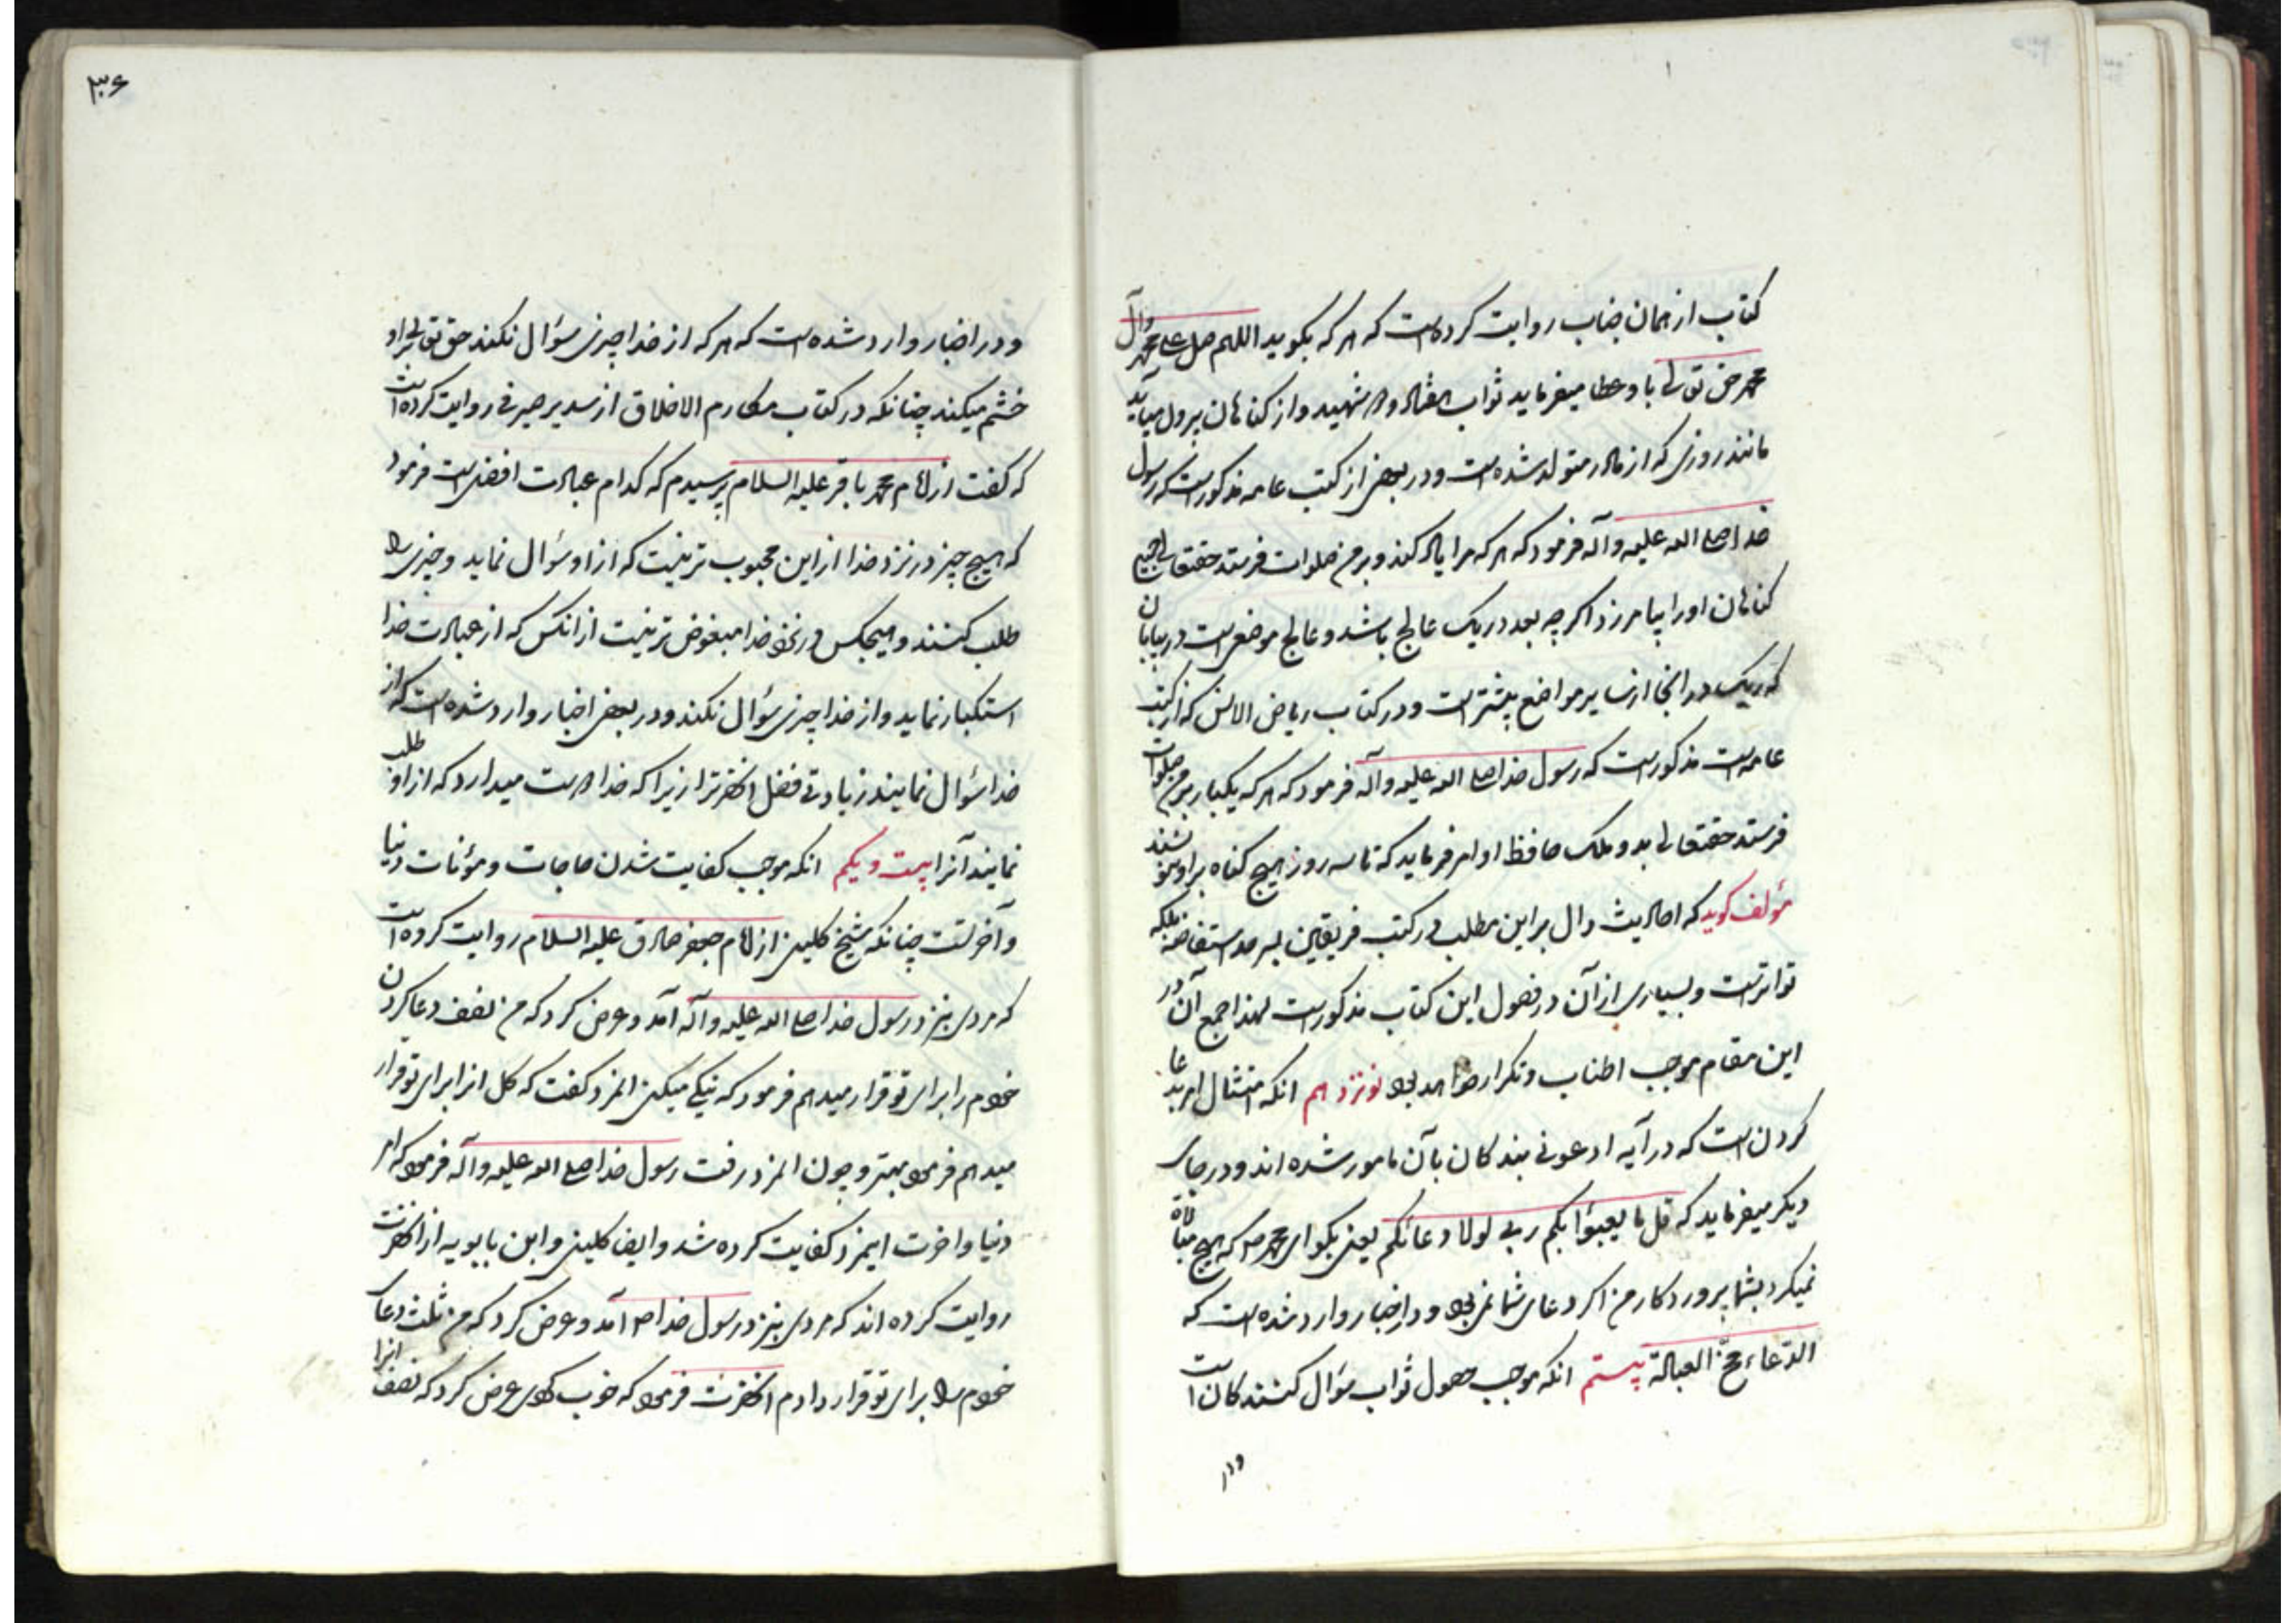 کتاب از همان جناب روایت کرده است که هر که بگوید اللهم صل علی محمد وآل
محمد حق تعالی باو عطا میفرماید ثواب هفتاد و دو شهید و از کناهان بیرون میآید
مانند روزی که از مادر متولد شده است و در بعضی از کتب عامه مذکور است که رسول
خدا صلی الله علیه وآله فرمود که هر که مرا یاد کند و بر من صلوات فرستد حقتعالی جمیع
کناهان او را بیامرزد اکرچه بعدد ریک عالج باشد و عالج موضعی است در بیابان
که ریک در انجا از سایر مواضع بیشتر است و در کتاب ریاض الانس که از کتب
عامه است مذکور است که رسول خدا صلی الله علیه وآله فرمود که هر که یکبار بر من صلوات
فرستد حقتعالی بدو ملک حافظ او امر فرماید که تا سه روز هیچ کناه بر او ننویسند
مؤلف کوید که احادیث دال بر این مطلب در کتب فریقین بسر حد استفاضه بلکه
تواتر است و بسیاری از آن در فصول این کتاب مذکور است لهذا جمع آن در
این مقام موجب اطناب و تکرار خواهد بود نوزدهم انکه امتثال امر بدعا
کردن است که در آیه ادعونی بندکان بآن مامور شده اند و در جای
دیکر میفرماید که قل ما یعبؤا بکم ربی لولا دعائکم یعنی بکو ای محمد ص که هیچ مبالاة
نمیکرد بشما پروردکار من اکر دعای شما نمی بود و در اخبار وارد شده است که
الدعاء مخ العبادة بیستم انکه موجب حصول ثواب سؤال کنندکان است
ودر
۳۰۶
و در اخبار وارد شده است که هر که از خدا چیزی سؤال نکند حق تعالی بر او
خشم میکند چنانکه در کتاب مکارم الاخلاق از سدیر صیرفی روایت کرده است
که کفت از امام محمد باقر علیه السلام پرسیدم که کدام عبادت افضل است فرمود
که هیچ چیز در نزد خدا از این محبوب تر نیست که از او سؤال نماید و چیزی را
طلب کنند و هیچکس در نزد خدا مبغوض تر نیست از انکس که از عبادت خدا
استکبار نماید و از خدا چیزی سؤال نکند و در بعضی اخبار وارد شده است که از
خدا سؤال نمایند زیادتی فضل انحضرترا زیرا که خدا دوست میدارد که از او طلب
نمایند آنرا بیست و یکم انکه موجب کفایت شدن حاجات و مؤنات دنیا
و آخرتست چنانکه شیخ کلینی از امام جعفر صادق علیه السلام روایت کرده است
که مردی بنزد رسول خدا صلی الله علیه وآله آمد و عرض کرد که من نصف دعا کردن
خودم را برای تو قرار میدهم فرمود که نیکی میکنی المزد کفت که کل انرا برای تو قرار
میدهم فرمود بهتر و چون المزد رفت رسول خدا صلی الله علیه وآله فرمود که امر
دنیا و اخرت اینمزد کفایت کرده شد و ایضا کلینی و ابن بابویه از انحضرت
روایت کرده اند که مردی بنزد رسول خدا ص آمد و عرض کرد که من ثلث دعای
خودم را برای تو قرار دادم انحضرت فرمود که خوب کردی عرض کرد که نصف انرا